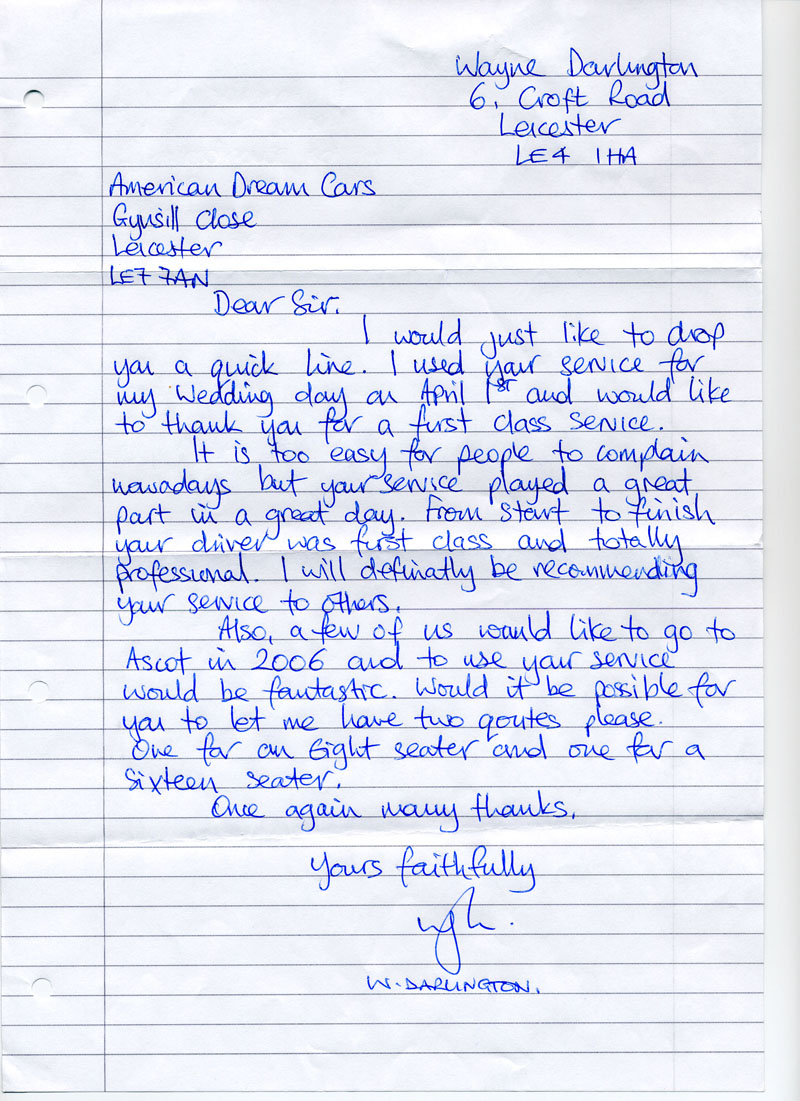 Wayne Darlington
6, Croft Road
Leicester
LE4 1HA
American Dream Cars
Gynsill Close
Leicester
LE7 7AN
Dear Sir.
I would just like to drop
you a quick line. I used your service for
my Wedding day on April 1st and would like
to thank you for a first class service.
It is too easy for people to complain
nowadays but your service played a great
part in a great day. From start to finish
your driver was first class and totally
professional. I will definatly be recommending
your service to others.
Also, a few of us would like to go to
Ascot in 2006 and to use your service
would be fantastic. Would it be possible for
you to let me have two qoutes please.
One for an Eight seater and one for a
Sixteen seater.
Once again many thanks.
Yours faithfully
W. DARLINGTON.